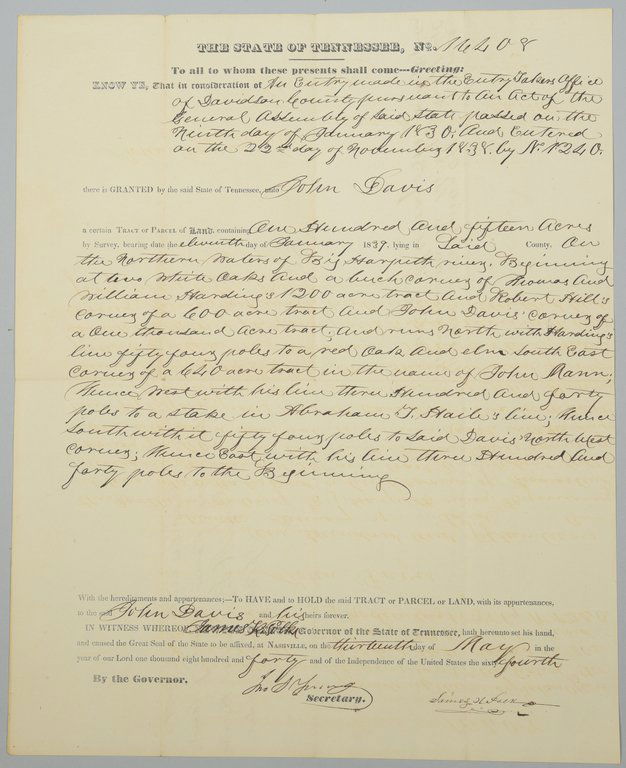 THE STATE OF TENNESSEE, No. 16408
To all to whom these presents shall come---Greeting:
KNOW YE, That in consideration of An Entry made in the Entry Takers Office
of Davidson County pursuant to an Act of the
General Assembly of said State passed on the
Ninth day of January 1830; And Entered
on the 22nd day of November 1838. by No. 1240.
there is GRANTED by the said State of Tennessee, unto John Davis
a certain TRACT or PARCEL of LAND, containing One Hundred And fifteen Acres
by Survey, bearing date the eleventh day of January 1839, lying in Said County. On
the Northern Waters of Big Harpeth river, Beginning
at two White Oaks And a buch corner of Thomas And
William Harding's 1200 acre tract And Robert Hill's
corner of a 600 acre tract And John Davis' corner of
a One thousand Acre tract; and runs North with Harding's
line fifty four poles to a red Oak And elm South East
corner of a 640 acre tract in the name of John Mann;
thence West with his line three Hundred And forty
poles to a stake in Abraham Haile's line; thence
South with it fifty four poles to said Davis' North West
corner; thence East, with his line three Hundred And
forty poles to the Beginning
With the hereditaments and appurtenances;—To HAVE and to HOLD the said TRACT or PARCEL or LAND, with its appurtenances,
to the said John Davis and his heirs forever.
IN WITNESS WHEREOF, James K. Polk Governor of the State of Tennessee, hath hereunto set his hand,
and caused the Great Seal of the State to be affixed, at NASHVILLE, on the thirteenth day of May in the
year of our Lord one thousand eight hundred and forty and of the Independence of the United States the sixty fourth
By the Governor.
Jno S Young
Secretary.
James K Polk